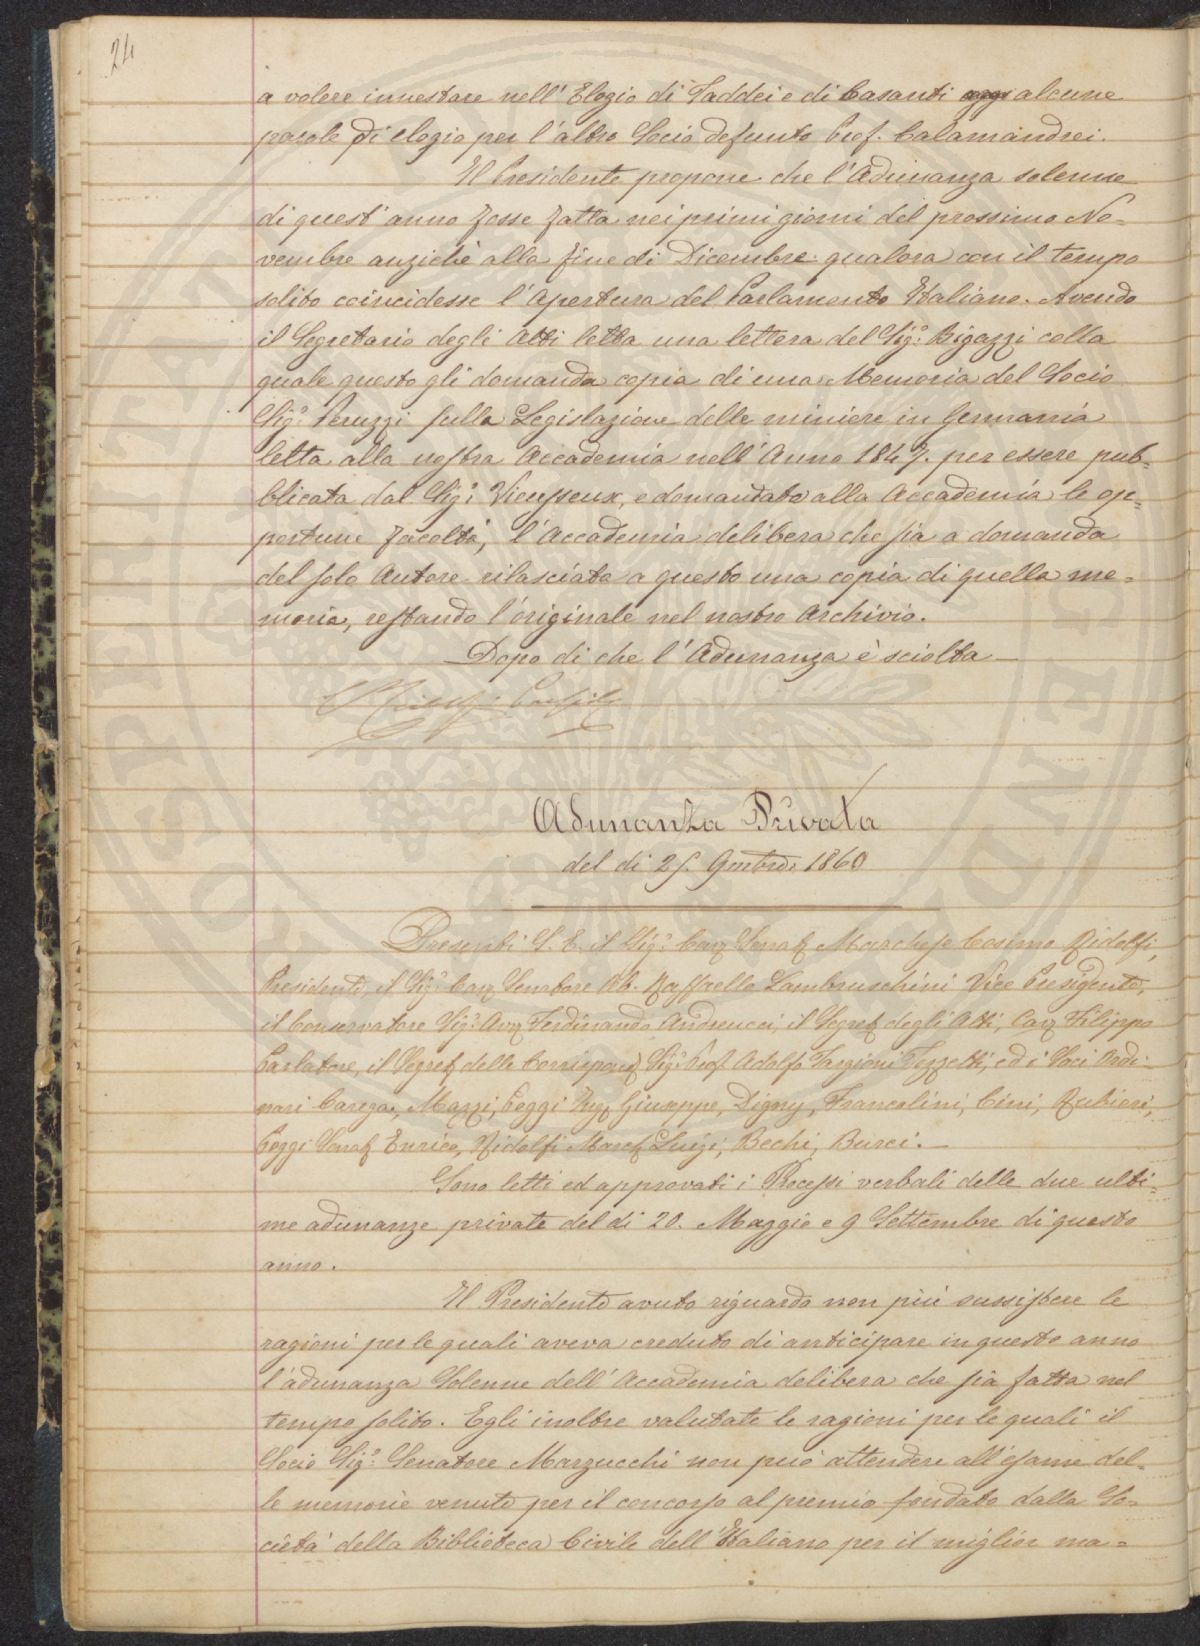 24
a volere innestare nell' Elogio di Taddei e di Casanti alcune
parole di elogio per l'altro Socio defunto Prof. Calamandrei.
Il Presidente propone che l'Adunanza solenne
di quest' anno fosse fatta nei primi giorni del prossimo No=
vembre anziché alla fine di Dicembre qualora con il tempo
solito coincidesse l'Apertura del Parlamento Italiano. Avendo
il Segretario degli Atti letta una lettera del Sig.r Bigazzi colla
quale questo gli domanda copia di una Memoria del Socio
Sig.r Peruzzi sulla Legislazione delle miniere in Germania
letta alla nostra Accademia nell' Anno 1847. per essere pub=
blicata dal Sig.r Vieusseux, e domandato alla Accademia le op=
portune facoltà, l'Accademia delibera che sia a domanda
del solo Autore rilasciata a questo una copia di quella me=
moria, restando l'originale nel nostro Archivio.
Dopo di che l'Adunanza è sciolta
Adunanza Privata
del di 25. 9mbre 1860
Presenti S. E. il Sig.r Cav. Senat. Marchese Cosimo Ridolfi,
Presidente, il Sig.r Cav. Senatore Ab. Raffaello Lambruschini Vice Presidente,
il Conservatore Sig.r Avv. Ferdinando Andreucci, il Segret. degli Atti, Cav. Filippo
Parlatore, il Segret. delle Corrispond. Sig.r Prof. Adolfo Targioni Tozzetti, ed i Soci Ordi=
nari Carega, Mazzi, Poggi Giuseppe, Digny, Francolini, Cini, Rubieri,
Poggi Senat. Enrico, Ridolfi March. Luigi, Bechi, Burci.
Sono letti ed approvati i Processi verbali delle due ulti=
me adunanze private del di 20. Maggio e 9 Settembre di questo
anno.
Il Presidente avuto riguardo non più sussistere le
ragioni per le quali aveva creduto di anticipare in questo anno
l'adunanza Solenne dell' Accademia delibera che sia fatta nel
tempo solito. Egli inoltre valutate le ragioni per le quali il
Socio Sig.r Senatore Marzucchi non può attendere all'esame del=
le memorie venute per il concorso al premio fondato dalla So=
cietà della Biblioteca Civile dell'Italiano per il miglior ma=